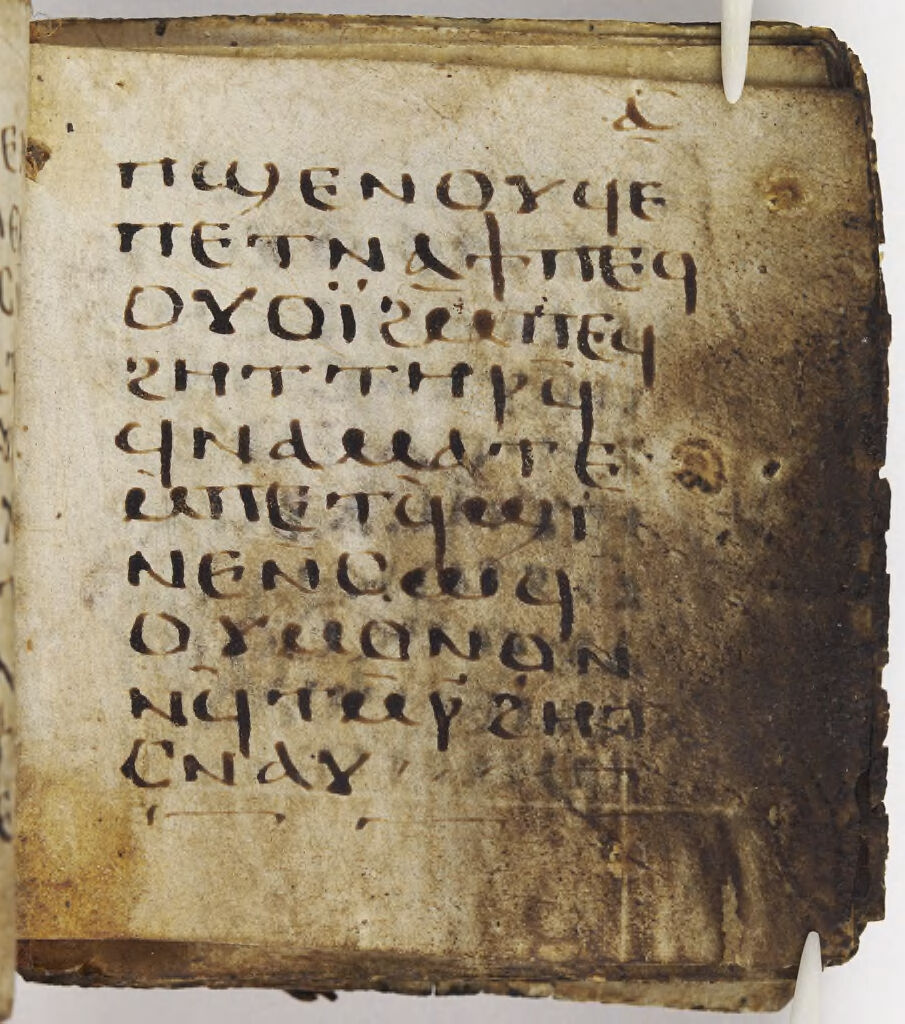 ⲁ̄
ⲡϣⲉⲛⲟⲩϥⲉ
ⲡⲉⲧⲛⲁϯⲡⲉϥ
ⲟⲩⲟⲓ̈ϩⲙ̄ⲡⲉϥ
ϩⲏⲧⲧⲏⲣϥ̄
ϥⲛⲁⲙⲁⲧⲉ
ⲙ̄ⲡⲉⲧϥ̄ϣⲓ
ⲛⲉⲛⲥⲱϥ
ⲟⲩⲙⲟⲛⲟⲛ
ⲛϥ̄ⲧⲙ̄ⲣ̄ϩⲏⲧ
ⲥⲛⲁⲩ